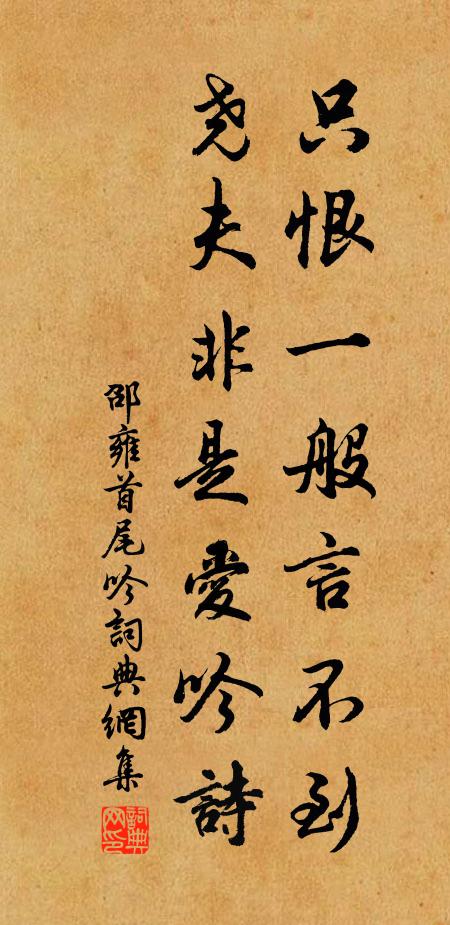 只恨一般言不到
尧夫非是愛吟詩
邵雍首尾吟詞典網集
詞典网印